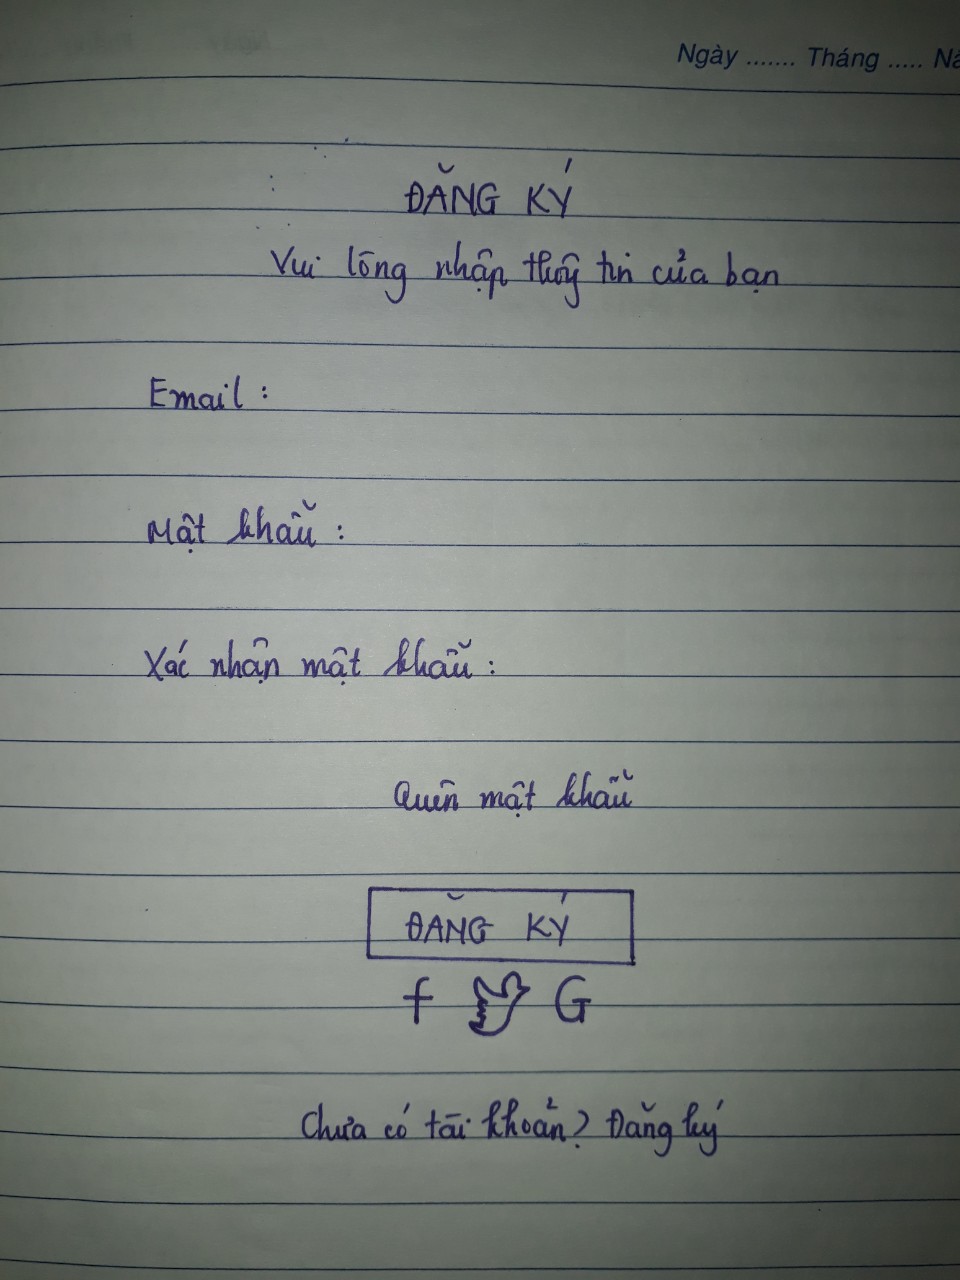 Ngày ....... Tháng ..... Nă
ĐĂNG KÝ
Vui lòng nhập thông tin của bạn
Email :
Mật khẩu :
Xác nhận mật khẩu :
Quên mật khẩu
ĐĂNG KÝ
f G
Chưa có tài khoản? Đăng ký